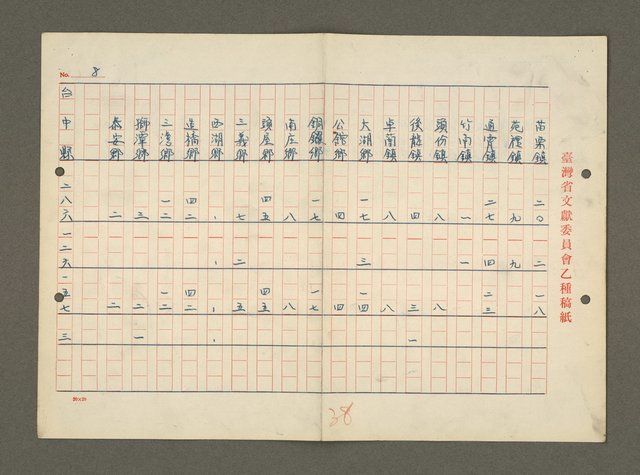 No. 8
臺灣省文獻委員會乙種稿紙
苗栗鎮 二〇 二 一八
苑裡鎮 九 九
通霄鎮 二七 四 二三
竹南鎮 一 一
頭份鎮 八 八
後龍鎮 四 三 一
卓南鎮 八 八
大湖鄉 一七 三 一四
公館鄉 四 四
銅鑼鄉 一七 一七
南庄鄉 八 八
頭屋鄉 四五 四五
三義鄉 七 二 五
西湖鄉
造橋鄉 四二 四二
三灣鄉 一二 一二
獅潭鄉 三 二 一
泰安鄉 二 二
台中縣 二八六 一二六 一五七 三
20×20
38